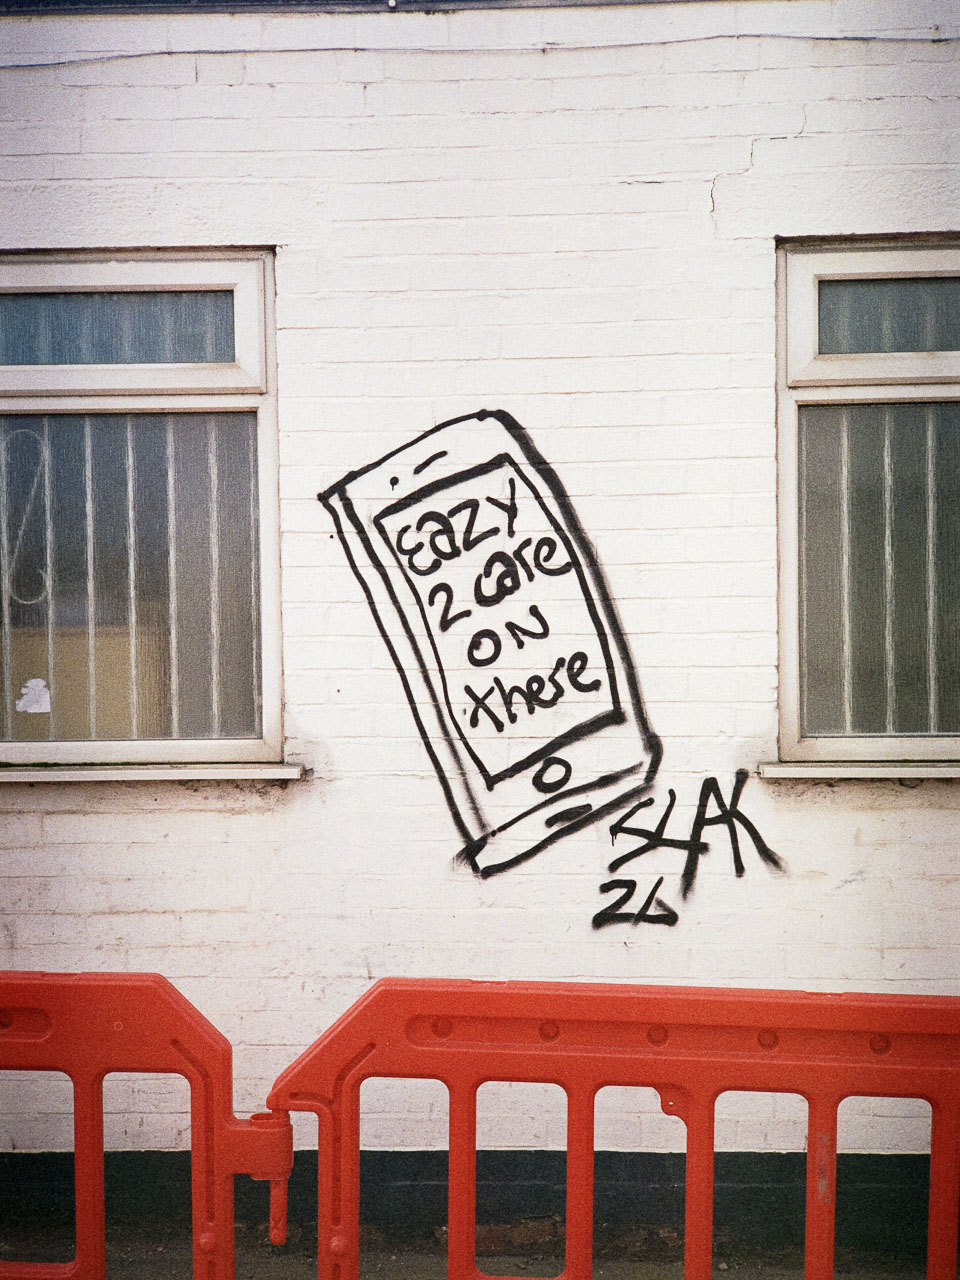 Eazy
2 care
ON
there
SLAK
26